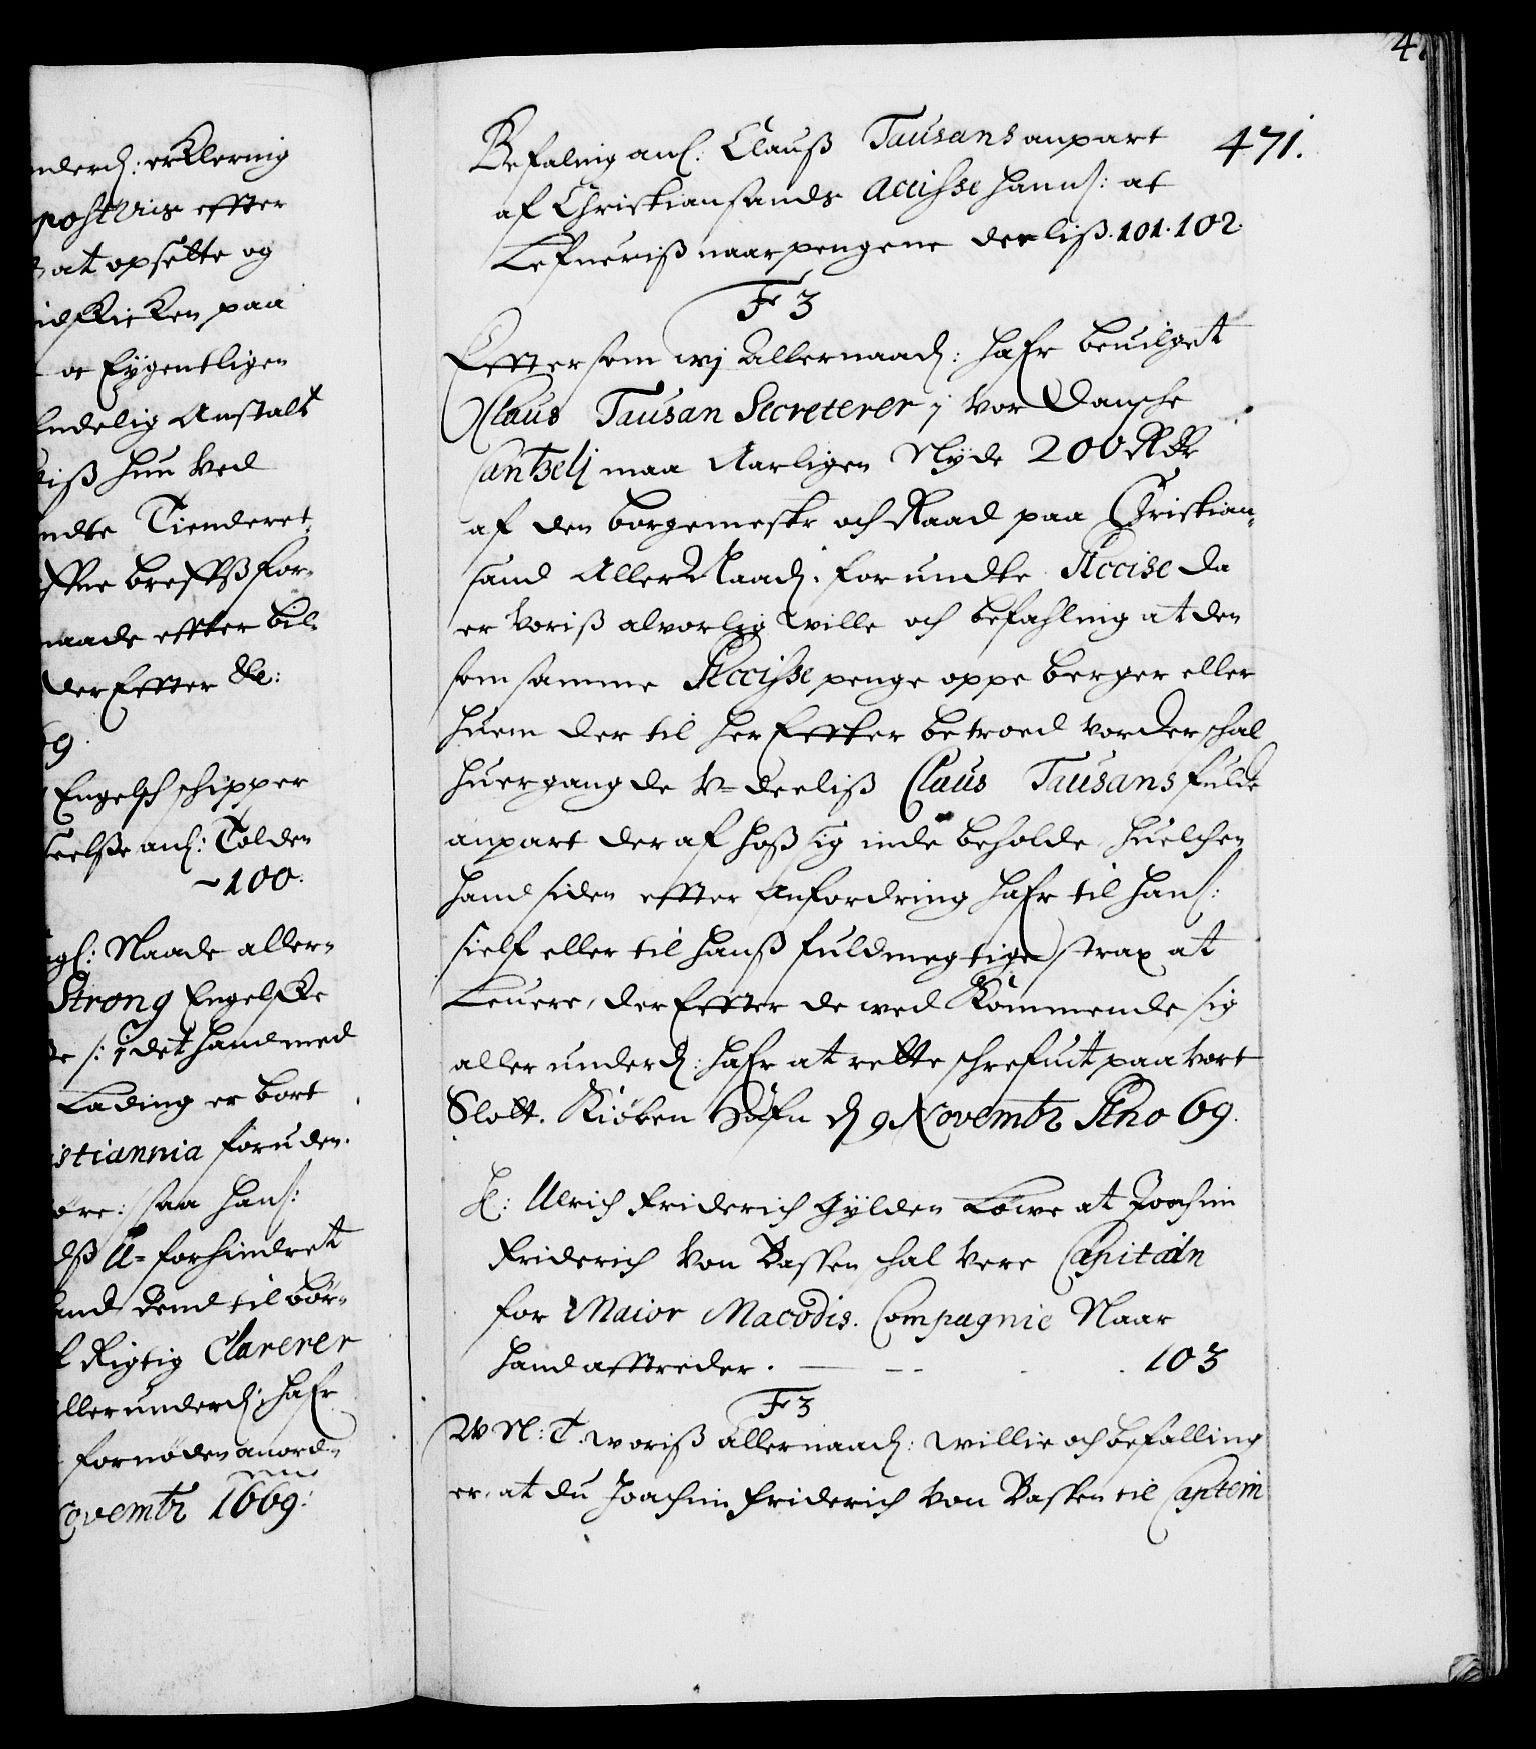 nderd: erklering
postvis effter
at opsette og
idskicken paa
oc Eÿgentligen
Endelig Anstalt
iß hun ved
ndte Tienderet
ffne breffß for-
naade effter bil-
der Effter &c:
69
Engelsk schipper
eelße anl: Tolden
~ 100.
gl: Naade aller-
Strong Engelske
/: i det hand med
Lading er bort
istiannia foruden
øre:/ saa hanß:
dß U-forhindret
and dend til bør-
Rigtig Clarerer
llerunderd: hafr
fornøden anord-
ovembr 1669:
47
471.
Befaling anl. Clauß Tausans anpart
af Christiansands Accisse hannß: at
Lefueriß naar pengene deeliß. 101. 102.
F 3
Efftersom wj Allernaad: hafr beuilget
Claus Tausan Secreterer j vor Dansche
Cantzelj maa Aarligen Nÿde 200 Rdr
af den borgemestr och Raad paa Christian-
sand Aller Naad: forundte Accise da
er Voriß alvorlig wille och befahling at den
som samme Accisse penge oppe berger eller
huem der til her Effter betroed vorder schal
huergang de V-deeliß Claus Tausans fulde
anpart der af hoß sig inde beholde huelchen
hand siden effter Anfordring hafr til hanß:
sielf eller til hanß fuldmegtige strax at
Leuere, der Effter de wed Kommende sig
aller underd: hafr at rette schrefuit paa vort
Slott. Kiøben Hafn d 9 Novembr Ano 69.
H: Ulrich Friderich Gÿlden Løwe at Joachim
Friderich Von Bassen schal vere Capitain
for Maior Macodis. Compagnie Naar
hand afftreder. 103
F 3
W N: T. woriß allernaad: willie och befalling
er, at du Joachim Friderich Von Bassen til Captein